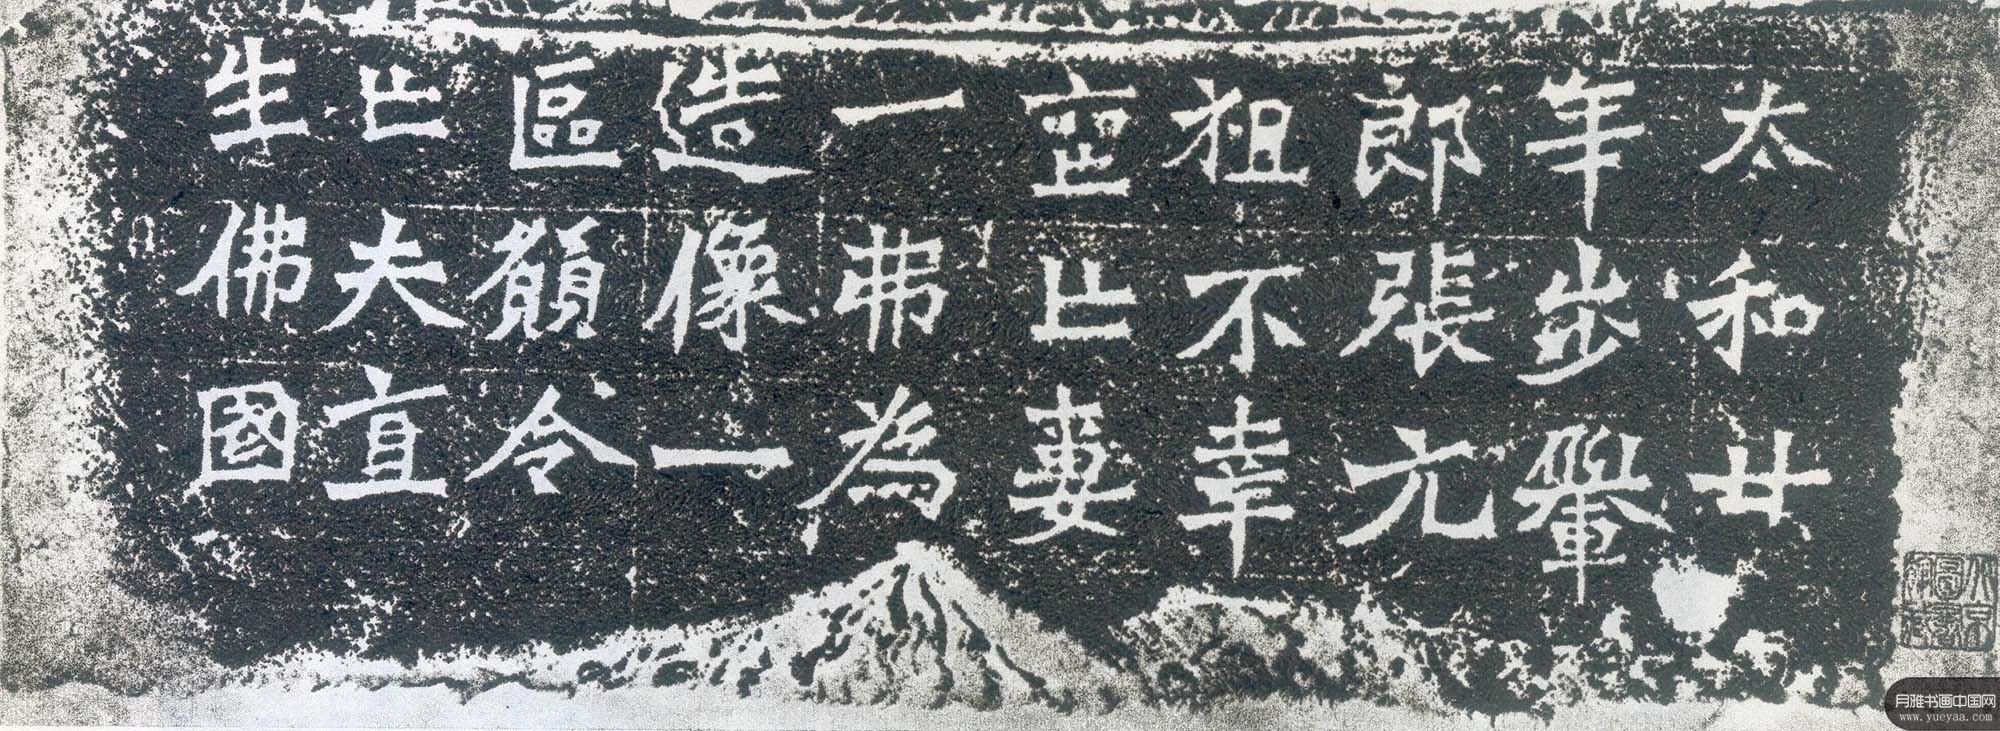 太和廿
年步轝
郎張元
祖不幸
䘮亡妻
一弗為
造像一
區願令
亡夫直
生佛國
月雅书画中国网
www.yueyaa.com